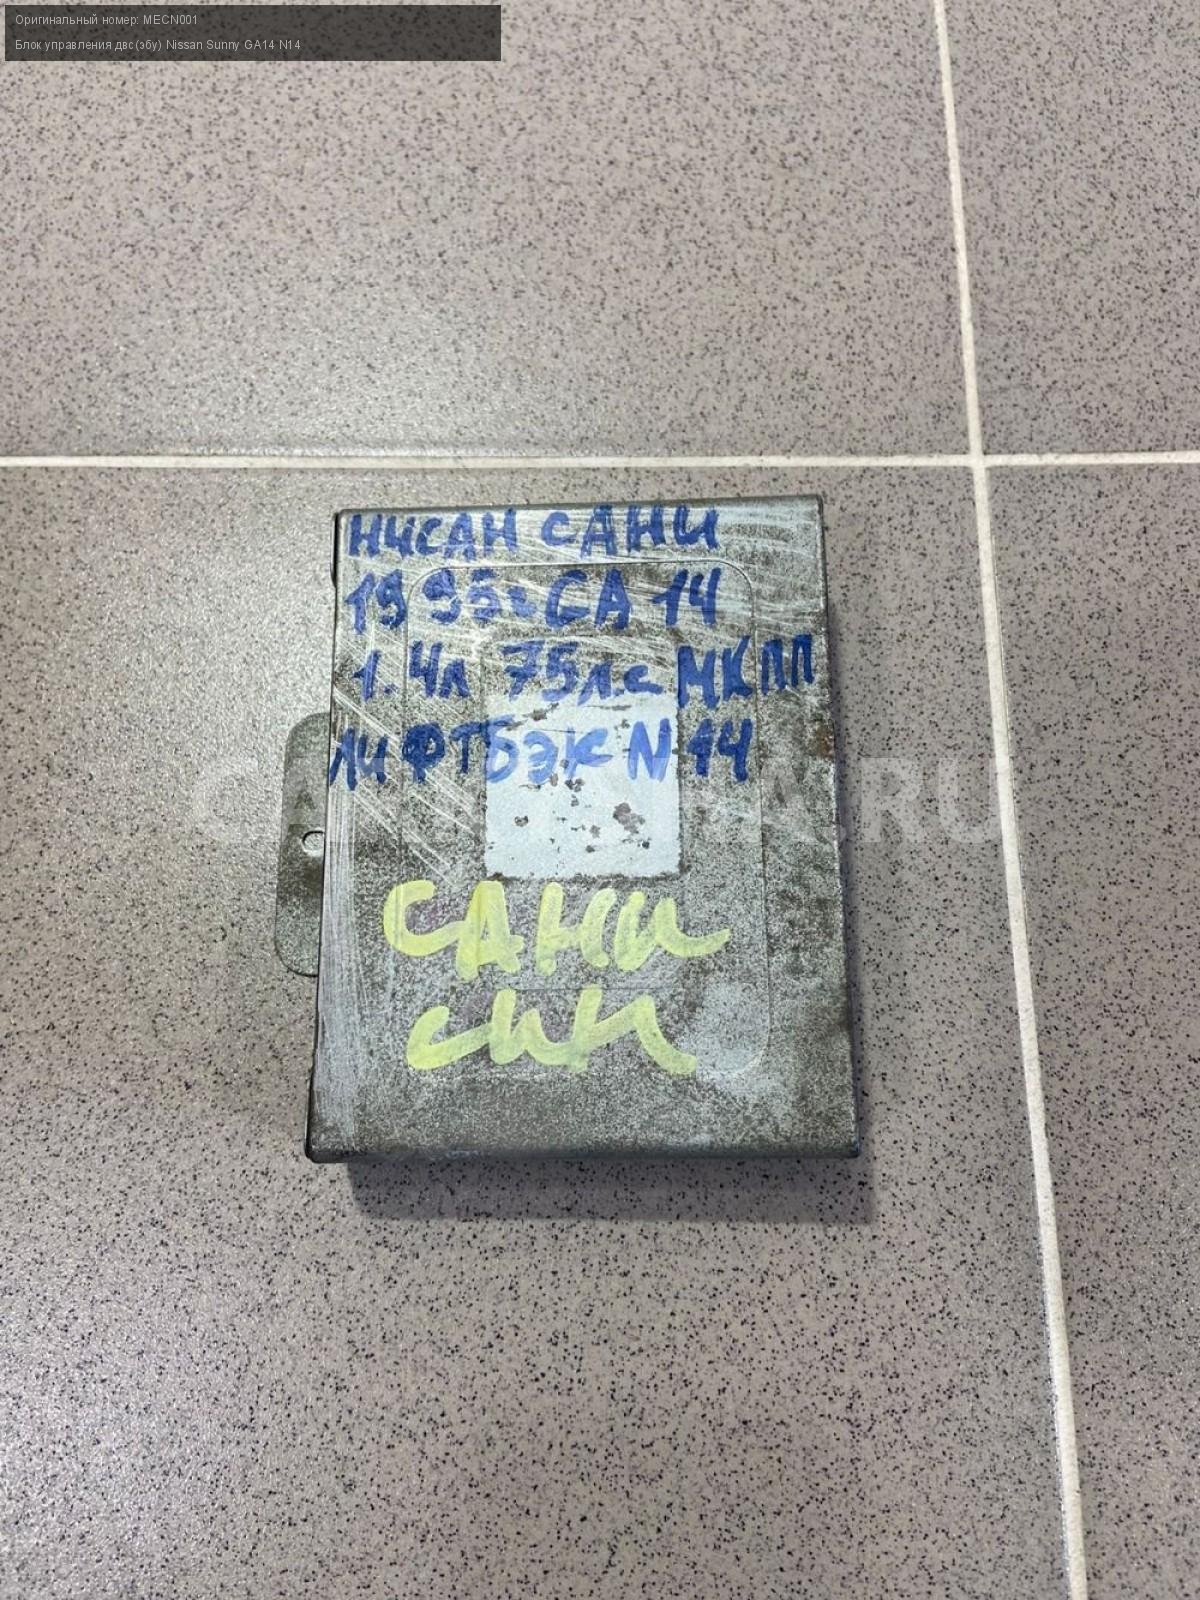 Оригинальный номер: MECN001
Блок управления двс(эбу) Nissan Sunny GA14 N14
НИСАН САНИ
1995г GA 14
1.4л 75л.с МКПП
ЛИФТБЭК N14
САНИ
СИН